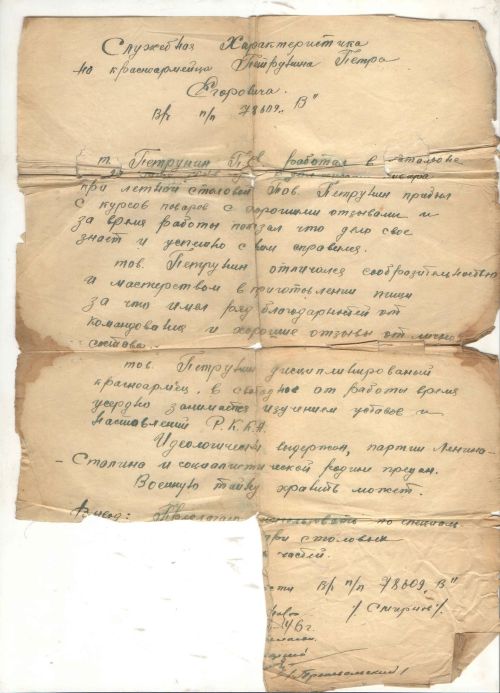 Служебная Характеристика
на красноармейца Петрунина Петра
Егоровича.
В/ п/п 78609 „В"
т. Петрунин П.Е. работал в
при летной столовой Тов. Петрунин прибыл
с курсов поваров с хорошими отзывами и
за время работы показал что дело свое
знает и успешно с ним справился.
тов. Петрунин отличался сообразительностью
и мастерством в приготовлении пищи
за что имел ряд благодарностей от
командования и хорошие отзывы от личного
состава.
тов. Петрунин дисциплинированый
красноармеец, в свободное от работы время
усердно занимается изучением уставов и
наставлений Р.К.К.А.
Идеологически выдержан, партии Ленина-
-Сталина и социалистической родине предан.
Военную тайну хранить может.
Вывод: по специальн
при столовых
частей.
сти В/ п/п 78609 „В"
/Смирнов/.
46 г.